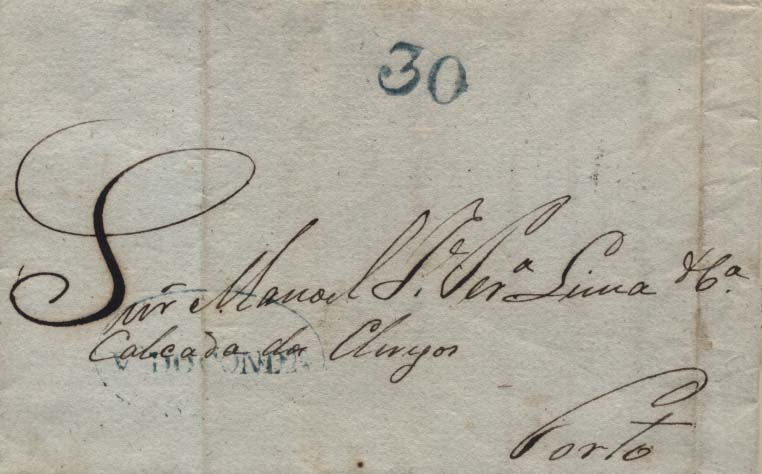 30
Snr Manoel J. Perª Lima & Cª
Calçada dos Clerigos
V. DO CONDE
Porto